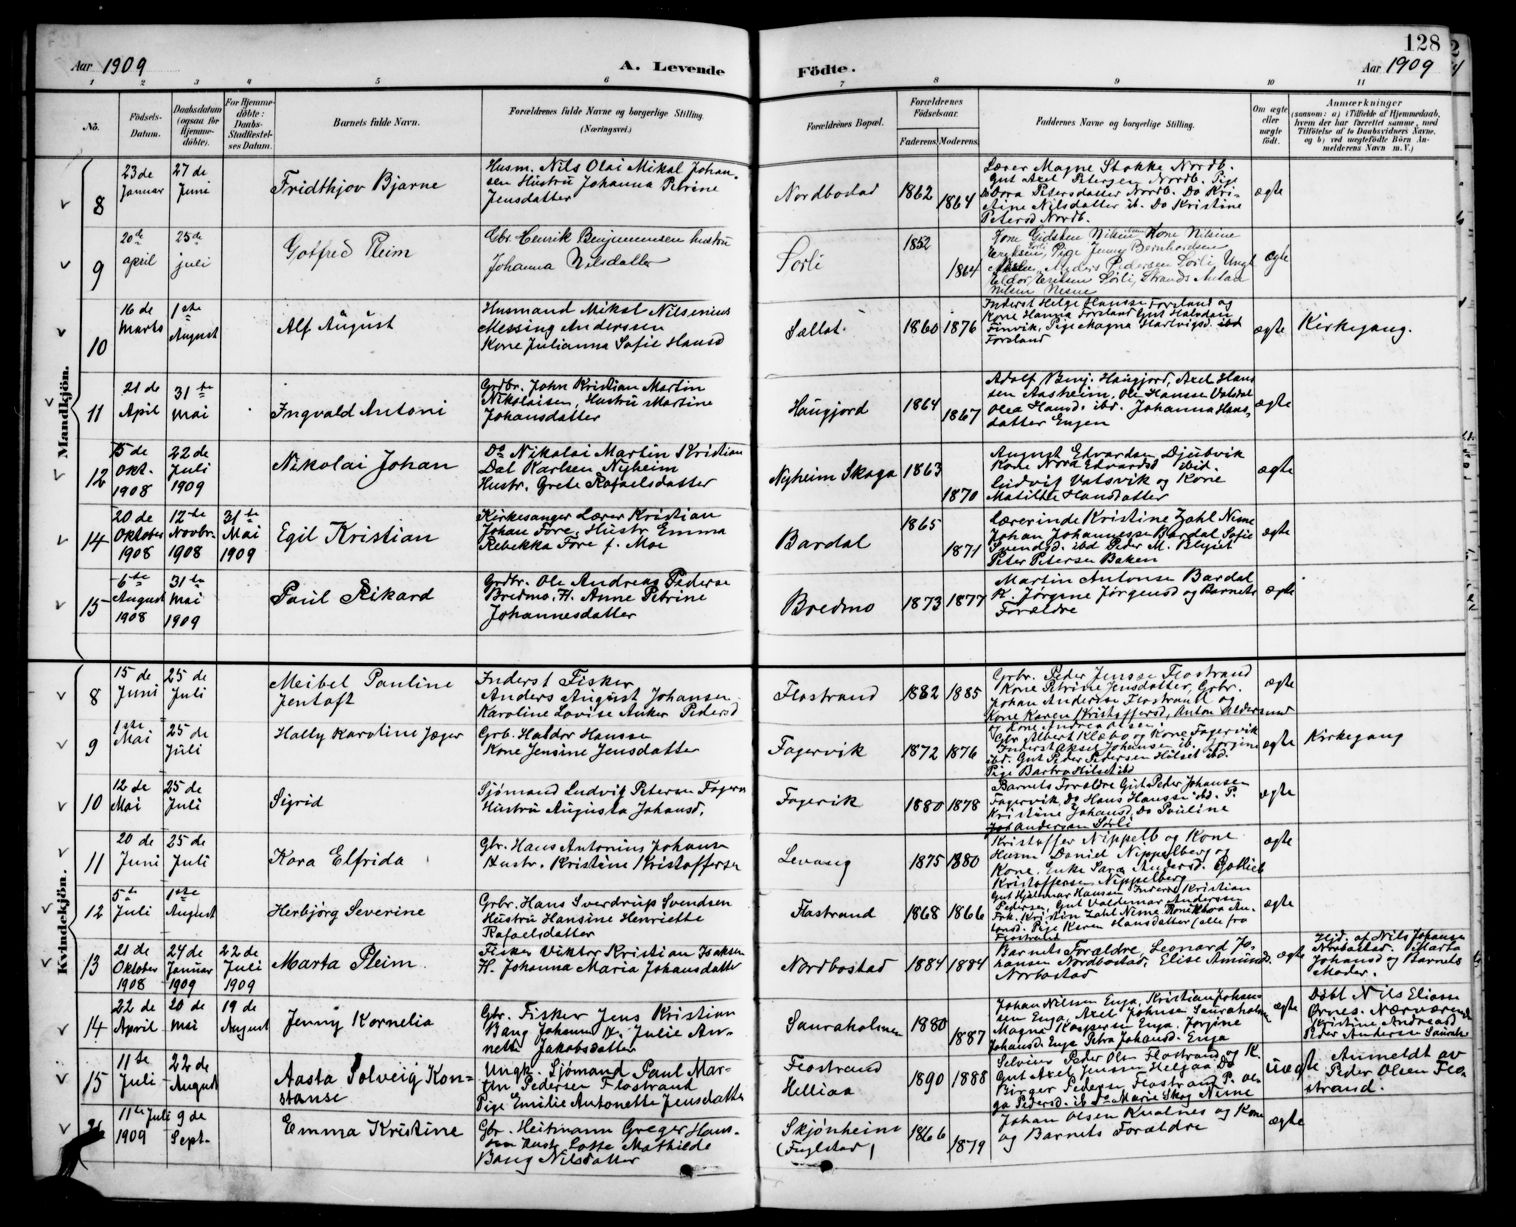 128
Aar 1909
A. Levende Födte.
Aar 1909
1 2 3 4 5 6 7 8 9 10 11
No.
Födsels-Datum.
Daabsdatum (ogsaa för Hjemme-döbte).
For Hjemme-döbte: Daabs-Stadfæstel-ses Datum.
Barnets fulde Navn.
Forældrenes fulde Navne og borgerlige Stilling. (Næringsvei.)
Forældrenes Bopæl.
Forældrenes Födselsaar.
Faderens. Moderens.
Faddernes Navne og borgerlige Stilling.
Om ægte eller uægte födt.
Anmærkninger
(saasom: a) i Tilfælde af Hjemmedaab,
hvem der har forrettet samme, med
Tilföielse af to Daabsvidners Navne,
og b) ved uægtefödte Börn An-
melderens Navn m. V.)
Mandkjön.
8
23 de Januar
27 de Juni
Fridthjov Bjarne
Husm. Nils Olai Mikal Johan-
sen Hustru Johanna Petrine
Jensdatter
Nordbostad
1862
1864
Lærer Magne Stokke Nordb.
Gut Axel Petersen Nordb. Pige
Dora Petersdatter Nordb. Do Kri-
stine Nilsdatter ib. Do Kristine
Petersd Nordb.
ægte
9
20 de april
25 de juli
Gotfred Pleim
Gbr Henrik Benjaminsen hustru
Johanna Nilsdatter
Sörli
1852
1864
ægte
10
16 de Marts
1 ste August
Alf August
Husmand Mikal Nilsenius
Messing Anderssen
Kone Julianna Sofie Hansd
1860 1876
Inderst Helge Hansse Forsland og
Kone Hanna Forsland Gut Halvdan
Finvik, Pige Magna Hartvigsd. ibd
Forsland
ægte
Kirkegang.
11
21 de April
31 te Mai
Ingvald Antoni
Grdbr. John Kristian Martin
Nikolaisen, Hustru Martine
Johansdatter
Haugjord
1864
1867
Adolf Benj. Haugjord, Axel Han-
sen Aasheim, Ole Hansse
Olea Hansd. ibr. Johanna Hans-
datter Engen
ægte
12
15 de Okt. 1908
22 de Juli 1909
Nikolai Johan
Do Nikolai Martin Kristian
Dal Karlsen Nyheim
Hustr. Grete Rafaelsdatter
Nyheim Skoga
1863
1870
August Edvardsen Djubvik
Kone Nora Edvardsd ibid.
Ludvig Vatsvik og Kone
Matilde Hansdatter
ægte
14
20 de Oktober 1908
12 te Novbr. 1908
31 te Mai 1909
Egil Kristian
Kirkesanger Lærer Kristian
Johan Före, Hustr. Emma
Rebekka Före f. Moe
Bardal
1865
1871
Lærerinde Kristine Zahl Nesne
Johan Johannesse Bardal Sofie
Svendsd. ibd Peder M.
Peter Petersen Baken
ægte
15
6 te August 1908
31 te Mai 1909
Paul Rikard
Grdbr. Ole Andreas Pederse
Bredmo, H. Anne Petrine
Johannesdatter
Bredmo
1873 1877
Martin Antonse Bardal
K. Jörgine Jörgensd og Barnets
Forældre
ægte
Kvindekjön.
8
15 de Juni
25 de Juli
Meibel Pauline
Jentoft
Inderst Fisker
Anders August Johansen
Karoline Lovise Anker Pedersd
Flostrand
1882 1885
Grbr. Peder Jensse Flostrand
Kone Petrine Jensdatter, Grbr.
Johan Anderse Flostrand og
Kone Karen Kristoffersd, Anton Aldersund
og Kone Andrea Olsen.
ægte
9
1 ste Mai
25 de Juli
Hally Karoline Jæger
Grb. Haldor Hansse
Kone Jensine Jensdatter
Fagervik
1872 1876
Gbr Albert Klæbo og Kone Fagervik
Inderst Aksel Johansen ib. Jörgine
ibd. Gut Peder Pedersen Hilset ibd.
Pige Barbra Hilset ibd
ægte
Kirkegang
10
12 de Mai
25 de Juli
Sigrid
Sjömand Ludvig Petersen Fagerv
Hustru Augusta Johansd.
Fagervik
1880 1878
Barnets Forældre Gut Peder Johansen
Fagervik, Do Hans Hansse ibd. P.
Kristine Johansd, Do Pauline
Joh Andersen Sörli
ægte
11
20 de Juni
25 de Juli
Kara Elfrida
Gbr. Hans Antonius Johanse
Hustr. Kristine Kristofferse
Levang
1875 1880
Kristoffer Nippelb og Kone
Husm. Daniel Nippelberg og
Kone, Enke Sara Andersd. Gotlieb
Kristoffersen Nippelberg
ægte
12
5 te Juli
1 ste August
Herbjörg Severine
Grbr. Hans Sverdrup Svendsen
Hustru Hansine Henriette
Rafaelsdatter
Flostrand
1868 1866
Gut Hjalmar Hansen Inderst Kristian
Pedersen, Gut Valdemar Anderssen
Frk. Kristin Zahl Nesne Kone Thora An-
tonsd. Pige Karen Hansdatter (alle fra
Flostrand
ægte
13
21 de Oktober 1908
24 de Januar 1909
22 de Juli 1909
Marta Pleim
Fisker Viktor Kristian Isaksen
H. Johanna Maria Johansdatter
Nordbostad
1884 1884
Barnets Forældre, Leonard Jo-
hansen Nordbostad, Elise Amunds.
Norbostad
ægte
Hjd. af Nils Johanse
Nordbostad. Marta
Johansd og Barnets
Moder.
14
22 de April
20 de Mai
19 de August
Jenny Kornelia
Gbr. Fisker Jens Kristian
Bang Johanse H. Julie An-
nette Jakobsdatter
Sauraholmen
1880
1887
Johan Nilsen Enga, Kristian Johan-
sen Enga, Axel Johnsen Sauraholmen
Magna Kaspersen Enga. Jörgine
Johansd. Enga Petra Johansd. Enga
ægte
Döbt Nils Eliasse
Örnes. Nærværende
Kristine Andreasd
Peder Andersen Saurah
15
11 te Juli
22 de August
Aasta Solveig Kon=
stanse
Ungk. Sjömand Paul Mar-
tin Pedersen Flostrand
Pige Emilie Antonette Jensdatter
Flostrand
Helliaa
1890 1888
Selveier Peder Olsen Flostrand og K.
Gut Axel Jensen Helgaa Do
Birger Pedersen Flostrand P. Ol-
ga Pedersd. ib Do Marie Skog Nesne
uægte
Anmeldt av
Peder Olsen Flo-
strand.
11 te Juli 1909
9 de Sept.
Emma Kristine
Gbr. Heitmann Greger Hans-
sen Hustr Lotte Mathilde
Bang Nilsdatter
Skjønheim
(Fuglstad)
1866
1879
Johan Olsen Kvalnes og Kone
og Barnets Forældre
ægte